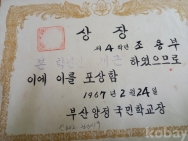 상 장
제 4 학년 조 용 부
하였으므로
이에 이를 포상함
1967 년 2 월 24 일
부산양정국민학교장
kobay